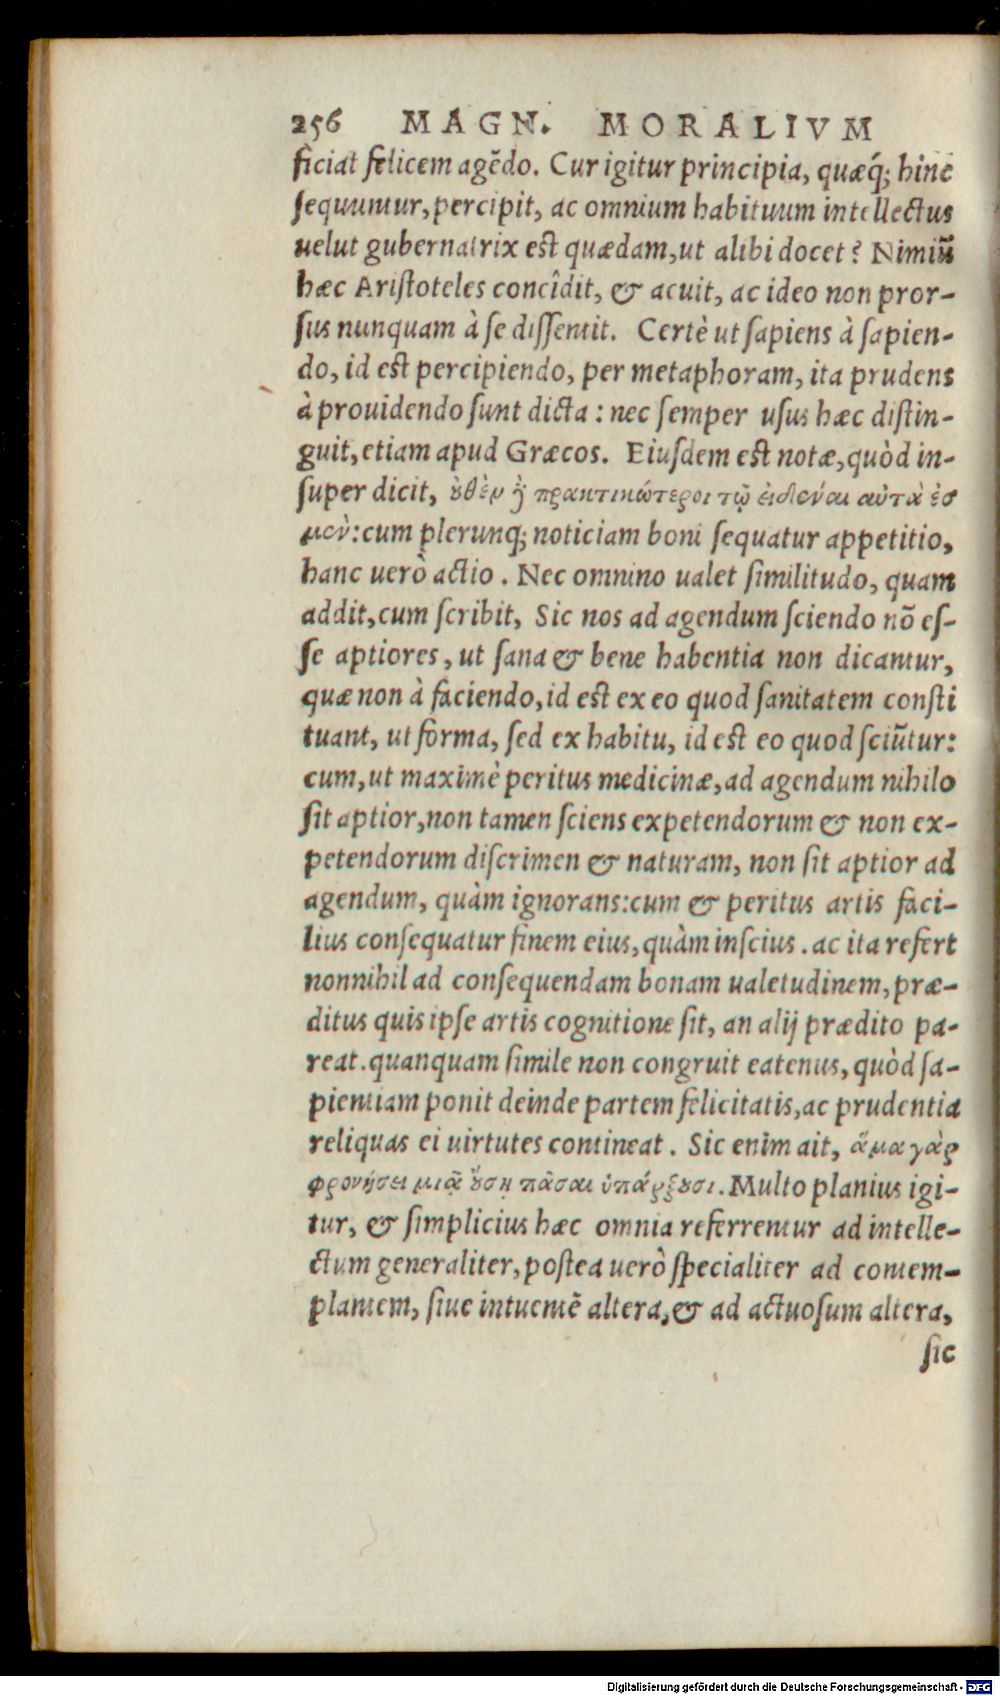 256 MAGN. MORALIVM
ficiat felicem agẽdo. Cur igitur principia, quæq́; hinc
sequuntur, percipit, ac omnium habituum intellectus
uelut gubernatrix est quædam, ut alibi docet? Nimiũ
hæc Aristoteles concîdit, & acuit, ac ideo non pror-
sus nunquam à se dissentit. Certè ut sapiens à sapien-
do, id est percipiendo, per metaphoram, ita prudens
à prouidendo sunt dicta: nec semper usus hæc distin-
guit, etiam apud Græcos. Eiusdem est notæ, quòd in-
super dicit, ȣ̓θὲν γ̀ πρακτικώτεροι τῷ εἰδέναι αὐτὰ ἐσ
μεν̀: cum plerunq; noticiam boni sequatur appetitio,
hanc uerò actio. Nec omnino ualet similitudo, quam
addit, cum scribit, Sic nos ad agendum sciendo nõ es-
se aptiores, ut sana & bene habentia non dicantur,
quæ non à faciendo, id est ex eo quod sanitatem consti
tuant, ut forma, sed ex habitu, id est eo quod sciũtur:
cum, ut maximè peritus medicinæ, ad agendum nihilo
sit aptior, non tamen sciens expetendorum & non ex-
petendorum discrimen & naturam, non sit aptior ad
agendum, quàm ignorans: cum & peritus artis faci-
lius consequatur finem eius, quàm inscius. ac ita refert
nonnihil ad consequendam bonam ualetudinem, præ-
ditus quis ipse artis cognitione sit, an alij prædito pa-
reat. quanquam simile non congruit eatenus, quòd sa-
pientiam ponit deinde partem felicitatis, ac prudentia
reliquas ei uirtutes contineat. Sic enim ait, ἅμα γὰρ
φρονήσει μιᾷ ȣ̓́σῃ πᾶσαι ὑπάρξȣσι. Multo planius igi-
tur, & simplicius hæc omnia referrentur ad intelle-
ctum generaliter, postea uerò specialiter ad contem-
plantem, siue intuentẽ altera, & ad actuosum altera,
sic
Digitalisierung gefördert durch die Deutsche Forschungsgemeinschaft - DFG